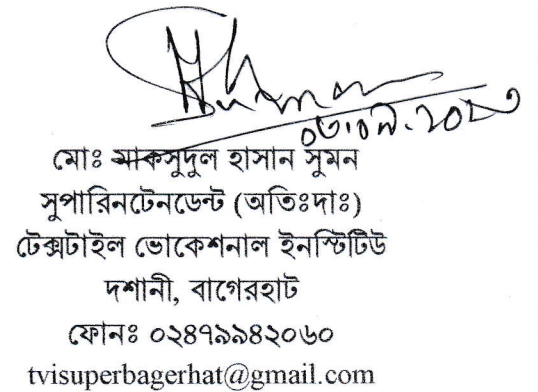 মোঃ মাকসুদুল হাসান সুমন
সুপারিনটেনডেন্ট (অতিঃদাঃ)
টেক্সটাইল ভোকেশনাল ইনস্টিটিউ
দশানী, বাগেরহাট
ফোনঃ ০২৪৭৯৯৪২০৬০
tvisuperbagerhat@gmail.com